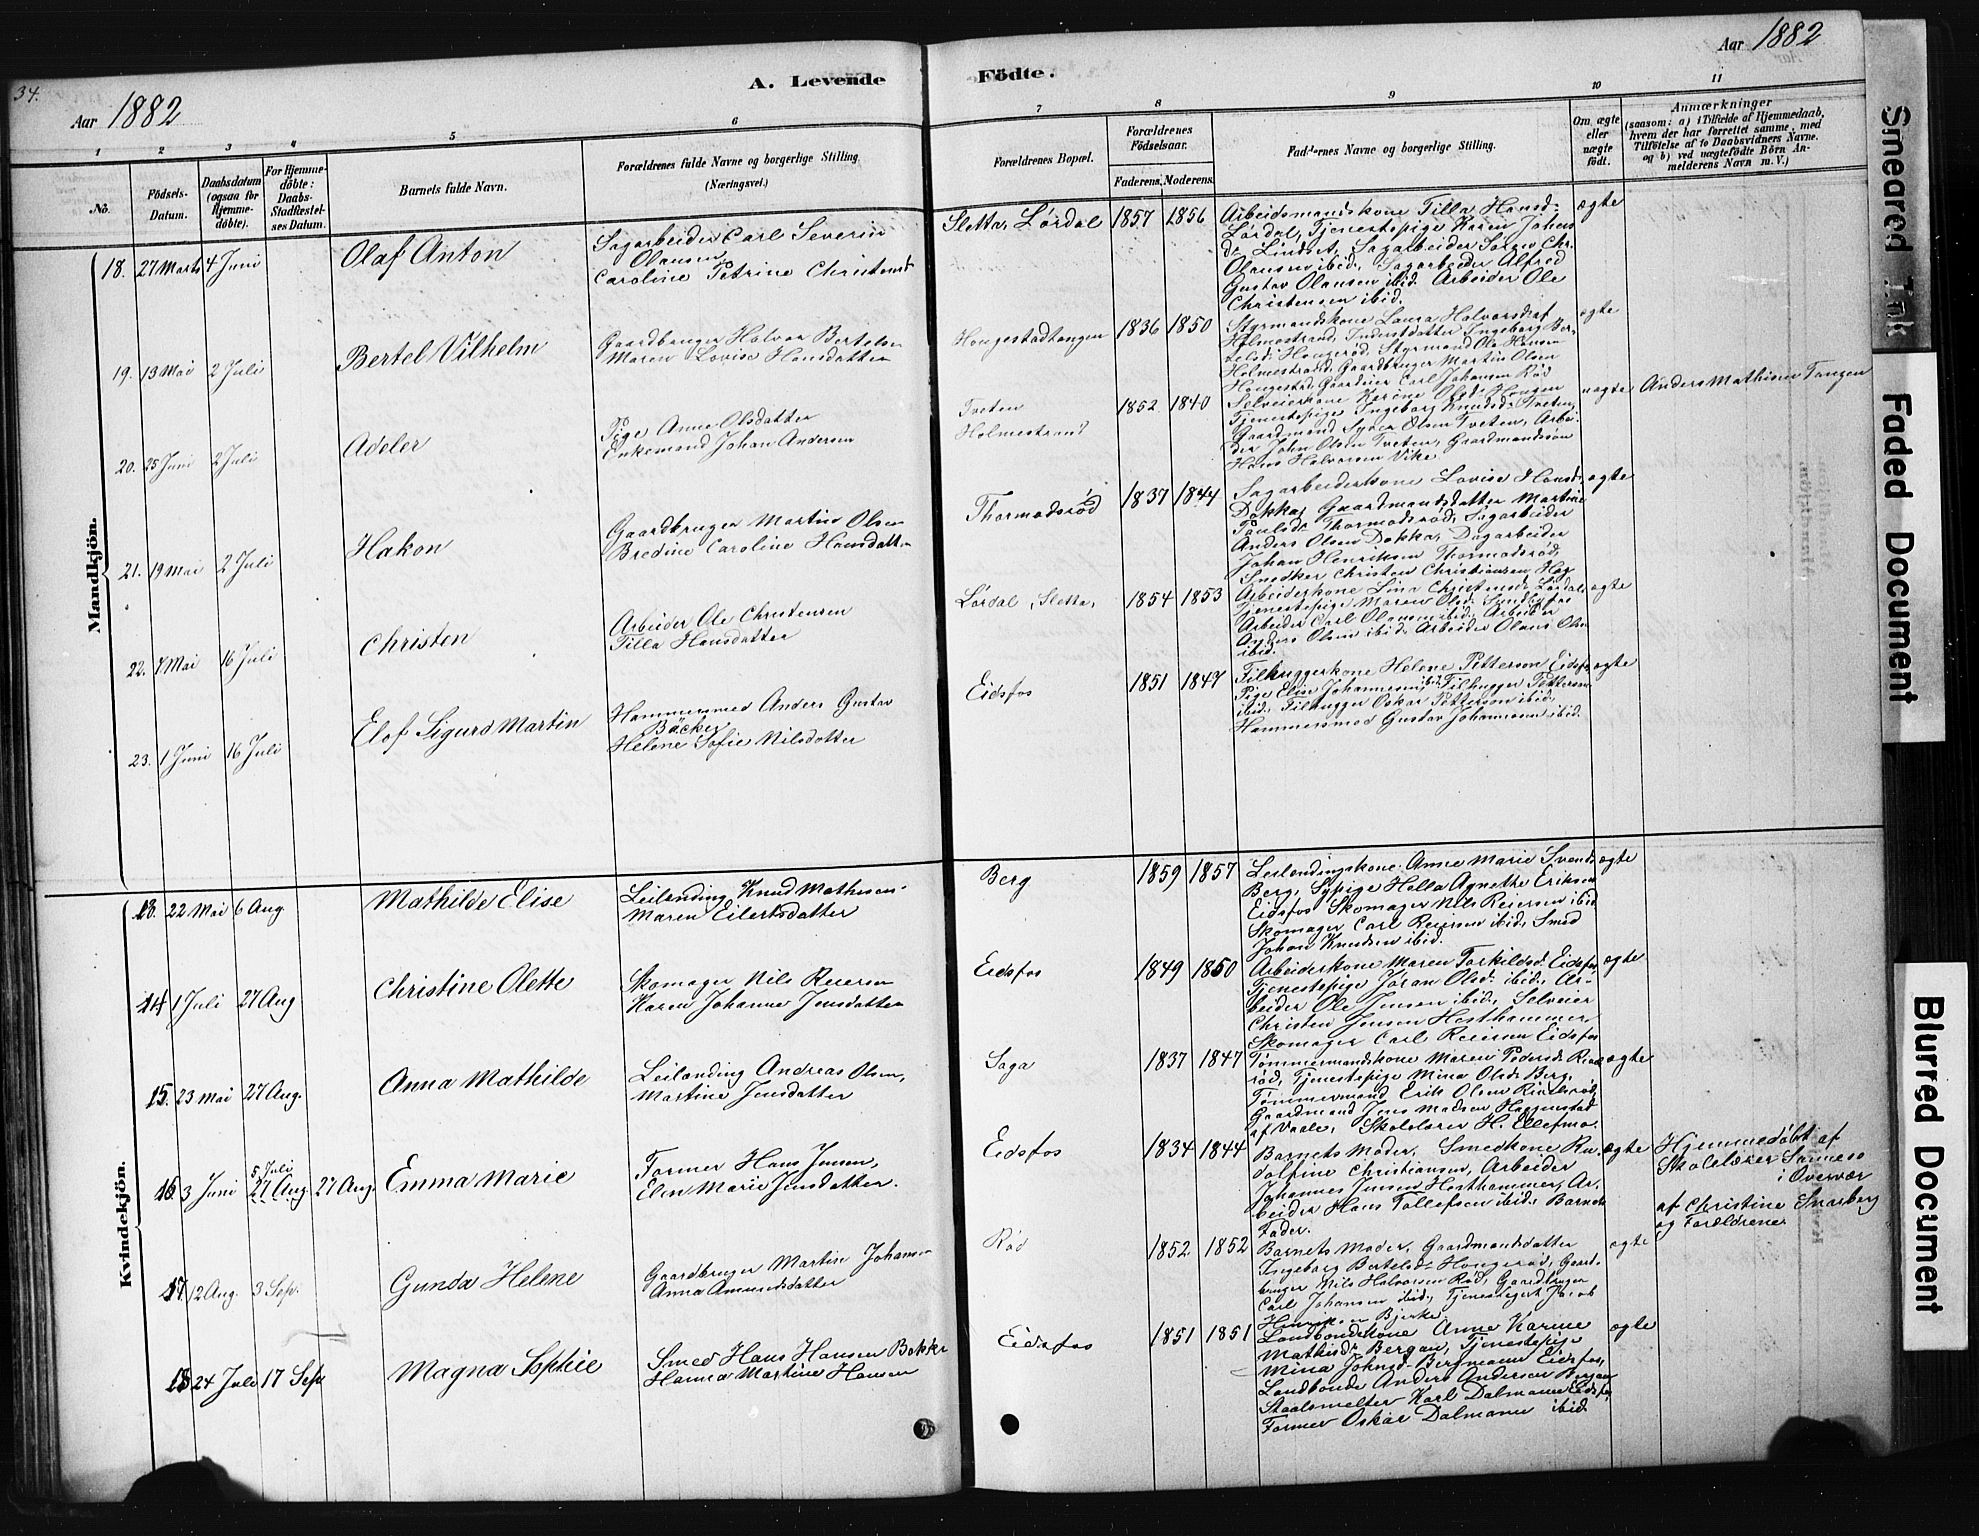 34.
Aar 1882
A. Levende
Födte.
Aar 1882
1 2 3 4 5 6 7 8 9 10 11
No.
Födsels-
Datum.
Daabsdatum
(ogsaa for
Hjemme-
döbte).
For Hjemme-
döbte:
Daabs-
Stadfæstel-
ses Datum.
Barnets fulde Navn.
Forældrenes fulde Navne og borgerlige Stilling
(Næringsvei.)
Forældrenes Bopæl.
Forældrenes
Födselsaar.
Faderens. Moderens.
Faddernes Navne og borgerlige Stilling.
Om ægte
eller
uægte
födt.
Anmærkninger
(saasom: a) i Tilfælde af Hjemmedaab,
hvem der har forrettet samme, med
Tilföielse af to Daabsvidners Navne.
og b) ved uægtefödte Börn An-
melderens Navn m. V.)
Mandkjön.
18. 27 Marts 4 Juni
Olaf Anton
Sagarbeider Carl Severin
Olausen
Caroline Petrine Christensd
Sletta, Lørdal
1857 1856
Arbeidsmandskone Tilla Hansd.
Lørdal, Tjenestepige Karen Johans
d. Lindset, Sagarbeider Søren Chr.
Olausen ibid., Sagarbeider Alfred
Gustav Olausen ibid. Arbeider Ole
Christensen ibid.
ægte
19. 13 Mai 2 Juli
Bertel Vilhelm
Gaardbruger Halvor Bertelsen
Maren Lovise Hansdatter
Hougestadtangen
1836 1850
Styrmandskone Laura Halvorsd af
Holmestrand, Inderstdatter Ingeborg Ber-
telsd. Hougerød, Styrmand Ole Hansen
Holmestrand, Gaardbruger Martin Olsen
Hougestad, Gaardeier Carl Johansen Rød
ægte
20. 25 Juni 2 Juli
Adeler
Pige Anne Olsdatter
Enkemand Johan Andersen
Tveten
Holmestrand
1852 1840
Selveierkone Karine Olsd. Hougen
Tjenestepige Ingeborg Knudsd. Tveten,
Gaardmand Syver Olsen Tveten, Arbei-
der John Olsen Tveten, Gaardmandssøn
Hans Halvorsen Vike
uægte
Anders Mathisen Tangen
21. 19 Mai 2 Juli
Hakon
Gaardbruger Martin Olsen
Bredine Caroline Hansdatter
Thormodsrød
1837 1844
Sagarbeiderkone Lovise Hansd.
Dokka, Gaardmandsdatter Martine
Paulsd. Thormodsrød, Sagarbeider
Anders Olsen Dokka, Dagarbeider
Johan Henriksen Thormodsrød,
Snedker Christen Christiansen Hag
ægte
22. 7 Mai 16 Juli
Christen
Arbeider Ole Christensen
Tilla Hansdatter
Lørdal, Sletta,
1854 1853
Arbeiderkone Lina Christensd. Lørdal,
Tjenestepige Maren Olsd.
Arbeider Carl Olausen ibid. Arbeider
Anders Olsen ibid. Arbeider Olaus Olsen
ibid.
ægte
23. 1 Juni 16 Juli
Elof Sigurd Martin
Hammersmed Anders Gustav
Bäcker
Helene Sofie Nilsdatter
Eidsfos
1851 1847
Filhuggerkone Helene Petterson Eidsfos
Pige Elise Johannesen ibid. Filhugger Petterson
ibid. Filhugger Oskar Petterson ibid.
Hammersmed Gustav Johannesen ibid.
ægte
Kvindekjön.
13. 22 Mai 6 Aug
Mathilde Elise
Leilending Knud Mathesen
Maren Eilertsdatter
Berg
1859 1857
Leilendingskone Anne Marie Svends
Berg, Sypige Hella Agnethe Eriksen
Eidsfos Skomager Nils Reiersen ibid
Skomager Carl Reiersen ibid, Smed
Johan Knudsen ibid.
ægte
14 1 Juli 27 Aug
Christine Olette
Skomager Nils Reiersen
Karen Johanne Jensdatter
Eidsfos
1849 1850
Arbeiderskone Maren Torkildsd. Eidsfos,
Tjenestepige Jøran Olsd. ibid, Ar-
beider Ole Jensen ibid, Selveier
Christen Jensen Hesthammer,
Skomager Carl Reiersen Eidsfos
ægte
15. 23 Mai 27 Aug.
Anna Mathilde
Leilending Andreas Olsen,
Martine Jensdatter
Saga
1837 1847
Tømmermandskone Maren Pedersd.
rød, Tjenestepige Mina Olsd. Berg,
Tømmermand Erik Olsen
Gaardmand Jens Madsen Haggestad
af Vaale, Skolelærer H. Ellefsmo
ægte
16 3 Juni 5 Juli 27 Aug. 27 Aug.
Emma Marie
Former Hans Jensen,
Elen Marie Jensdatter.
Eidsfos
1834 1844
Barnets Moder, Smedkone Ru-
dolfine Christiansen, Arbeider
Johannes Jensen Hesthammer, Ar-
beider Hans Tollefsen ibid, Barnets
Fader.
ægte
Hjemmedøbt af
Skolelærer
i Overvær
af Christine Snarberg
og Forældrene
17 12 Aug. 3 Sep.
Gunda Helene
Gaardbruger Martin Johansen
Anna Amundsdatter
Rød
1852 1852
Barnets Moder, Gaardmandsdatter
Ingeborg Bertelsd. Hougerød, Gaard-
bruger Nils Halvorsen Rød, Gaardbruger
Carl Johansen ibid., Tjenestegut Jacob
Henriksen Bjerke.
ægte
18 24 Juli 17 Sep
Magna Sophie
Smed Hans Hansen Bakke
Hanna Martine Hansen
Eidsfos
1851 1851
Landbondekone Anne Karine
Mathisd. Bergan, Tjenestepige
Mina Johnsd. Bergmann Eidsfos,
Landbonde Anders Andersen Bergan
Staalsmelter Karl Dalmann Eidsfos,
Former Oskar Dalmann ibid
ægte
Smeared Ink
Faded Document
Blurred Document